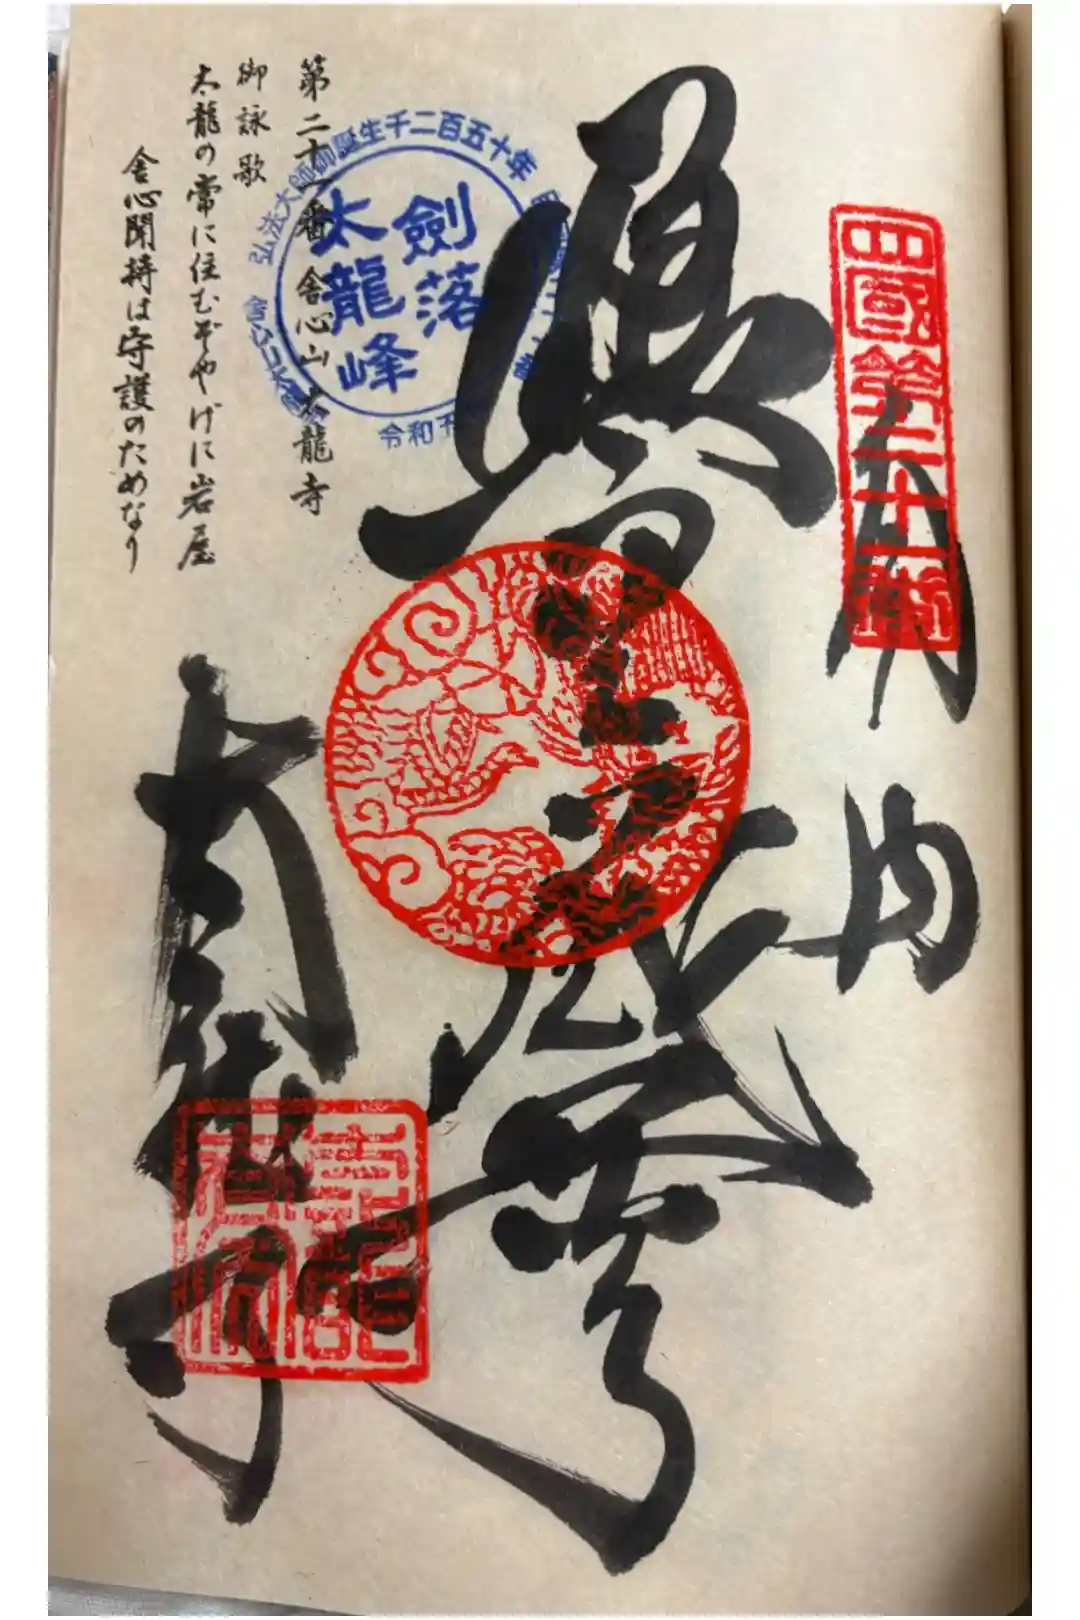 四國第二十一番
奉納
虚空蔵尊
太龍寺
第二十一番 舎心山 太龍寺
御詠歌
太龍の常に住むぞやげに岩屋
舎心聞持は守護のためなり
弘法大師御誕生千二百五十年
劍落
太龍峰
令和五